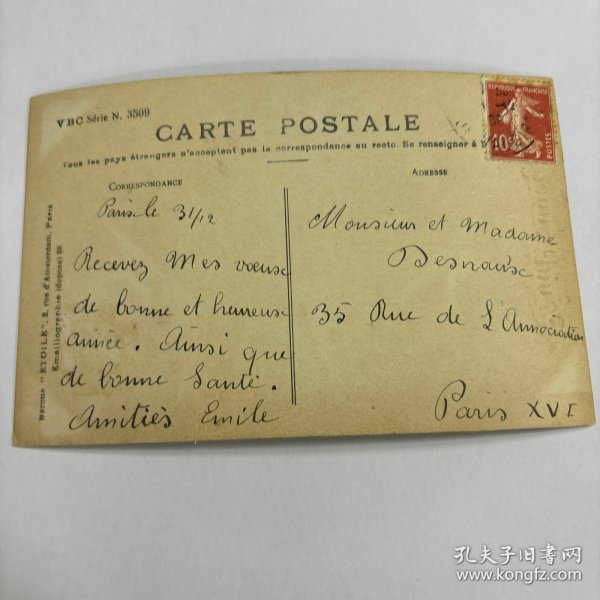 VBC Série N. 3509
CARTE POSTALE
Tous les pays étrangers n'acceptent pas la correspondance au recto. Se renseigner à
CORRESPONDANCE
ADRESSE
REPUBLIQUE FRANÇAISE
10c
POSTES
Paris le 31/12
Recevez Mes vœux
de bonne et heureuse
année. Ainsi que
de bonne Santé.
Amitiés Emile
Monsieur et Madame
35 Rue de L'Annociation
Paris XVI
Marque "ETOILE", 2, rue d'Amsterdam, Paris
Emaillographie (déposé) 58
孔夫子旧书网
www.kongfz.com